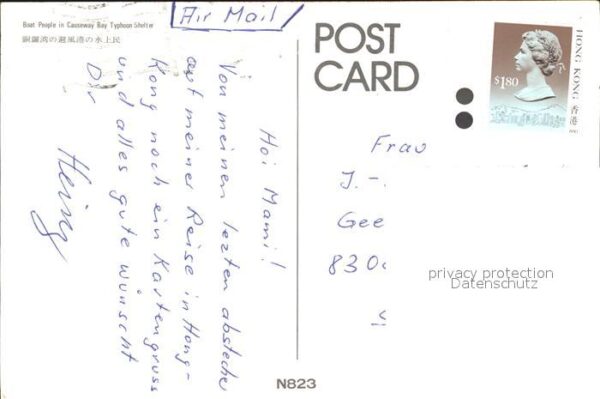 Boat People in Causeway Bay Typhoon Shelter
銅鑼湾の避風港の水上民
Air Mail
POST
CARD
$1.80
HONG KONG 香港
Hoi Mami!
Von meinen lezten abstecher
auf meiner Reise in Hong-
Kong noch ein Kartengruss
und alles gute wünscht
Dir
Heinz
Frau
J.-.
Gee
830
privacy protection
Datenschutz
N823